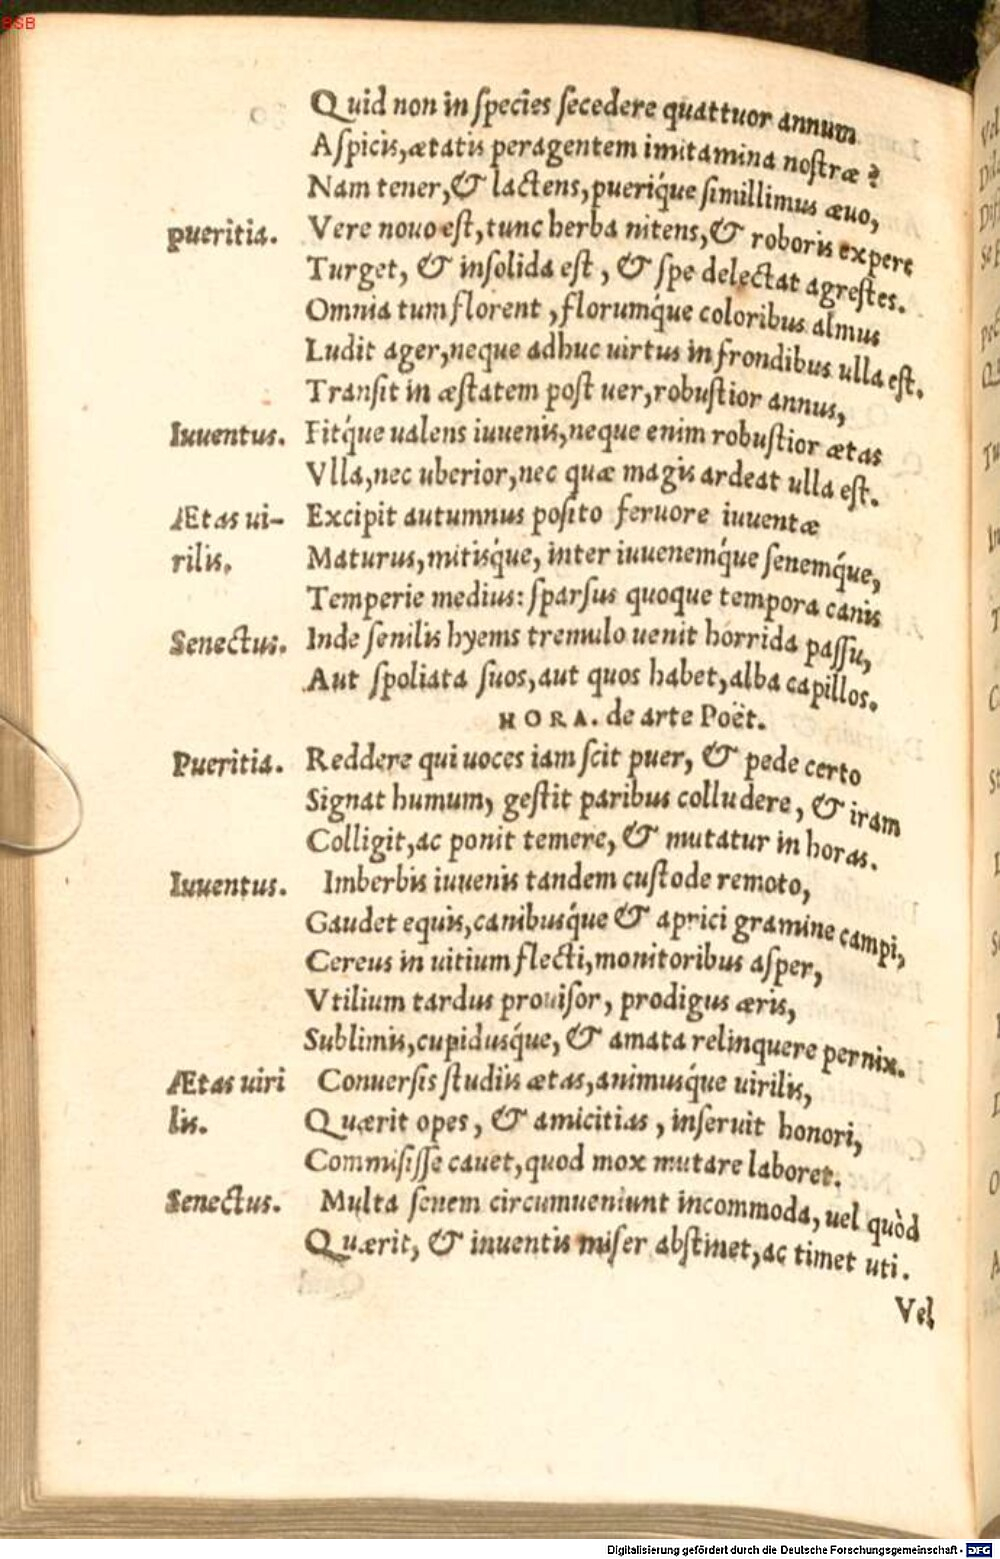 BSB
Quid non in species secedere quattuor annum
Aspicis, ætatis peragentem imitamina nostræ?
Nam tener, & lactens, pueriq́ue simillimus æuo,
pueritia. Vere nouo est, tunc herba nitens, & roboris expers
Turget, & insolida est, & spe delectat agrestes.
Omnia tum florent, florumq́ue coloribus almus
Ludit ager, neque adhuc uirtus in frondibus ulla est.
Transit in æstatem post uer, robustior annus,
Iuuentus. Fitq́ue ualens iuuenis, neque enim robustior ætas
Vlla, nec uberior, nec quæ magis ardeat ulla est.
Ætas ui- Excipit autumnus posito feruore iuuentæ
rilis. Maturus, mitisq́ue, inter iuuenemq́ue senemq́ue,
Temperie medius: sparsus quoque tempora canis
Senectus. Inde senilis hyems tremulo uenit horrida passu,
Aut spoliata suos, aut quos habet, alba capillos.
HORA. de arte Poët.
Pueritia. Reddere qui uoces iam scit puer, & pede certo
Signat humum, gestit paribus colludere, & iram
Colligit, ac ponit temere, & mutatur in horas.
Iuuentus. Imberbis iuuenis tandem custode remoto,
Gaudet equis, canibusq́ue & aprici gramine campi,
Cereus in uitium flecti, monitoribus asper,
Vtilium tardus prouisor, prodigus æris,
Sublimis, cupidusq́ue, & amata relinquere pernix.
Ætas uiri Conuersis studiis ætas, animusq́ue uirilis,
lis. Quærit opes, & amicitias, inseruit honori,
Commisisse cauet, quod mox mutare laboret.
Senectus. Multa senem circumueniunt incommoda, uel quòd
Quærit, & inuentis miser abstinet, ac timet uti.
Vel
Digitalisierung gefördert durch die Deutsche Forschungsgemeinschaft - DFG